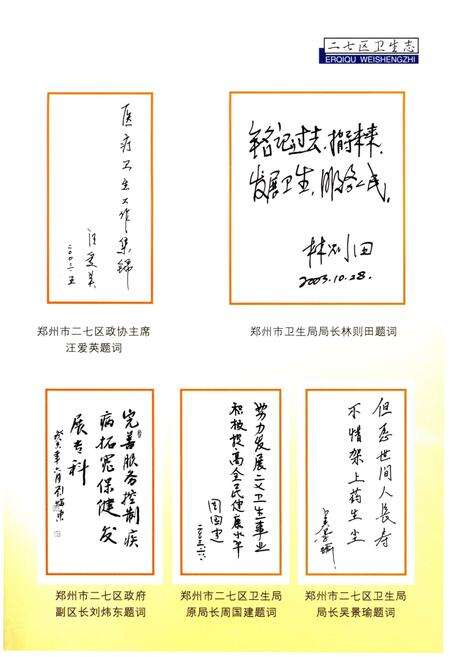 二七区卫生志
ERQIQU WEISHENGZHI
医疗卫生工作集锦
汪爱英
铭记过去,携手未来,
发展卫生,服务人民。
林则田
2003.10.28.
郑州市二七区政协主席
汪爱英题词
郑州市卫生局局长林则田题词
完善服务控制疾
病拓宽保健发
展专科
癸未年六月刘炜东
努力发展二七卫生事业
积极提高全民健康水平
周国建
但愿世间人长寿
不惜架上药生尘
吴景瑜
郑州市二七区政府
副区长刘炜东题词
郑州市二七区卫生局
原局长周国建题词
郑州市二七区卫生局
局长吴景瑜题词